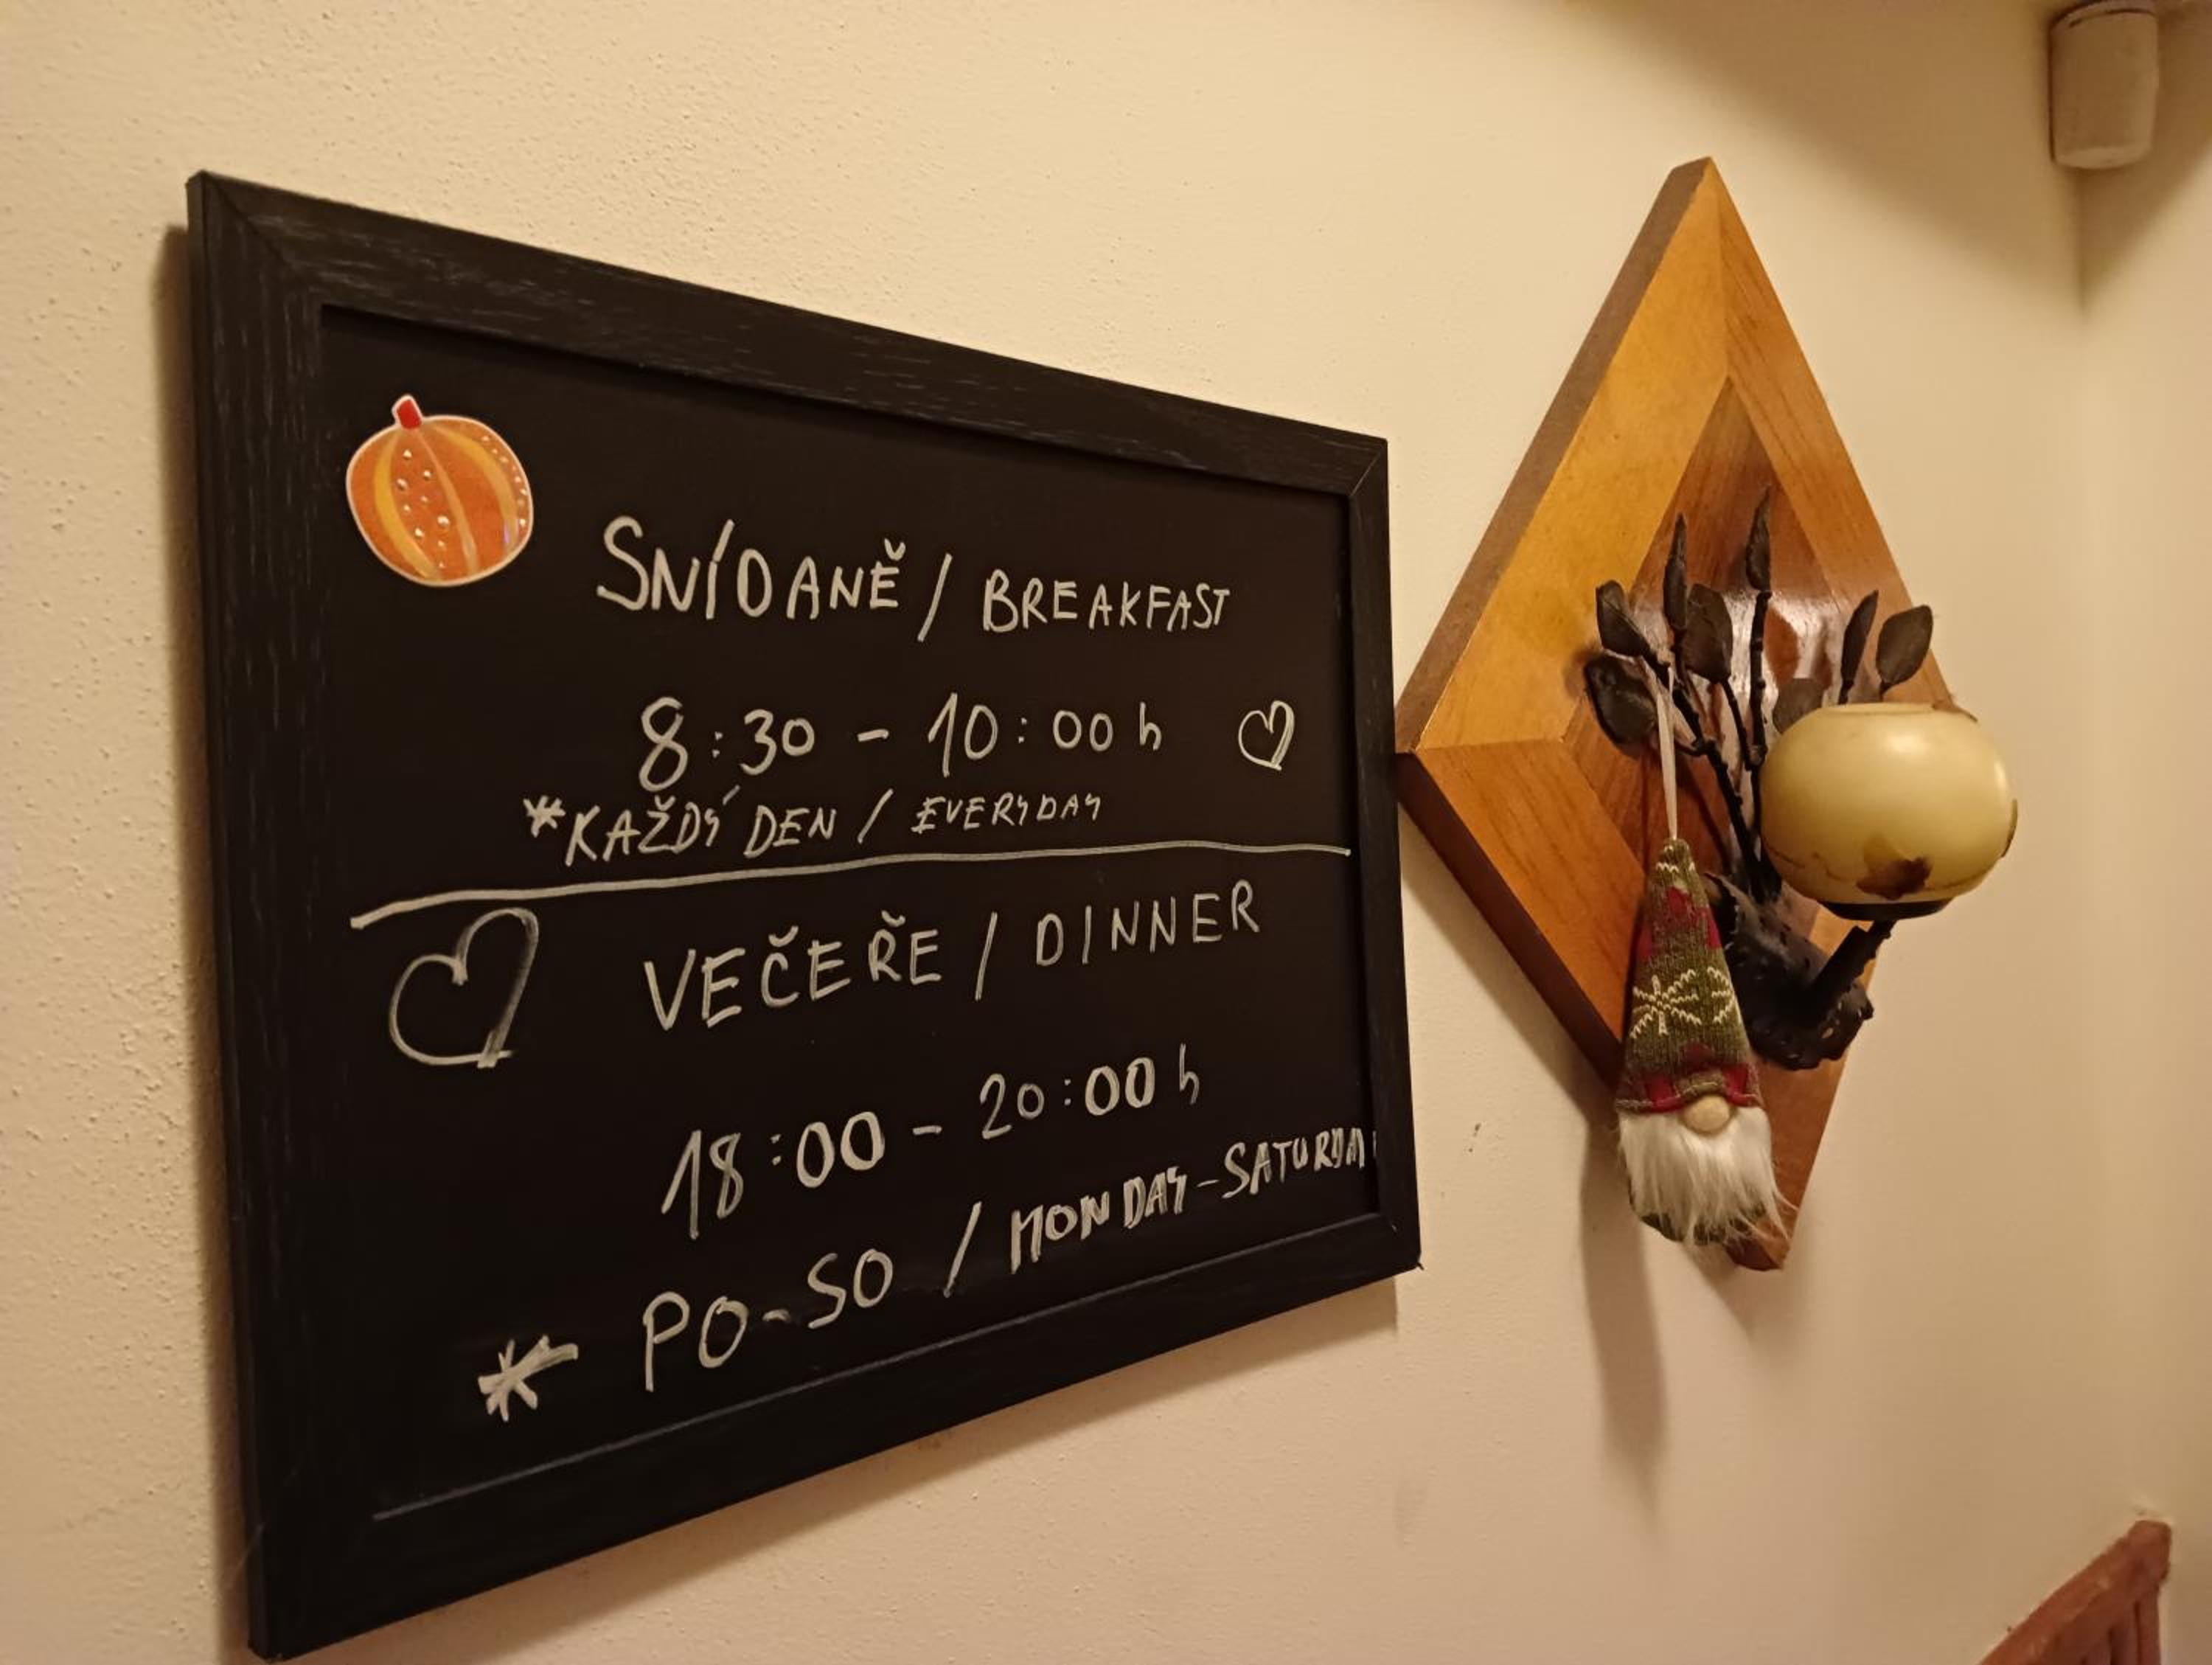 SNÍDANĚ / BREAKFAST
8:30 - 10:00 h
*KAŽDÝ DEN / EVERYDAY
VEČEŘE / DINNER
18:00 - 20:00 h
* PO-SO / MONDAY-SATURDAY